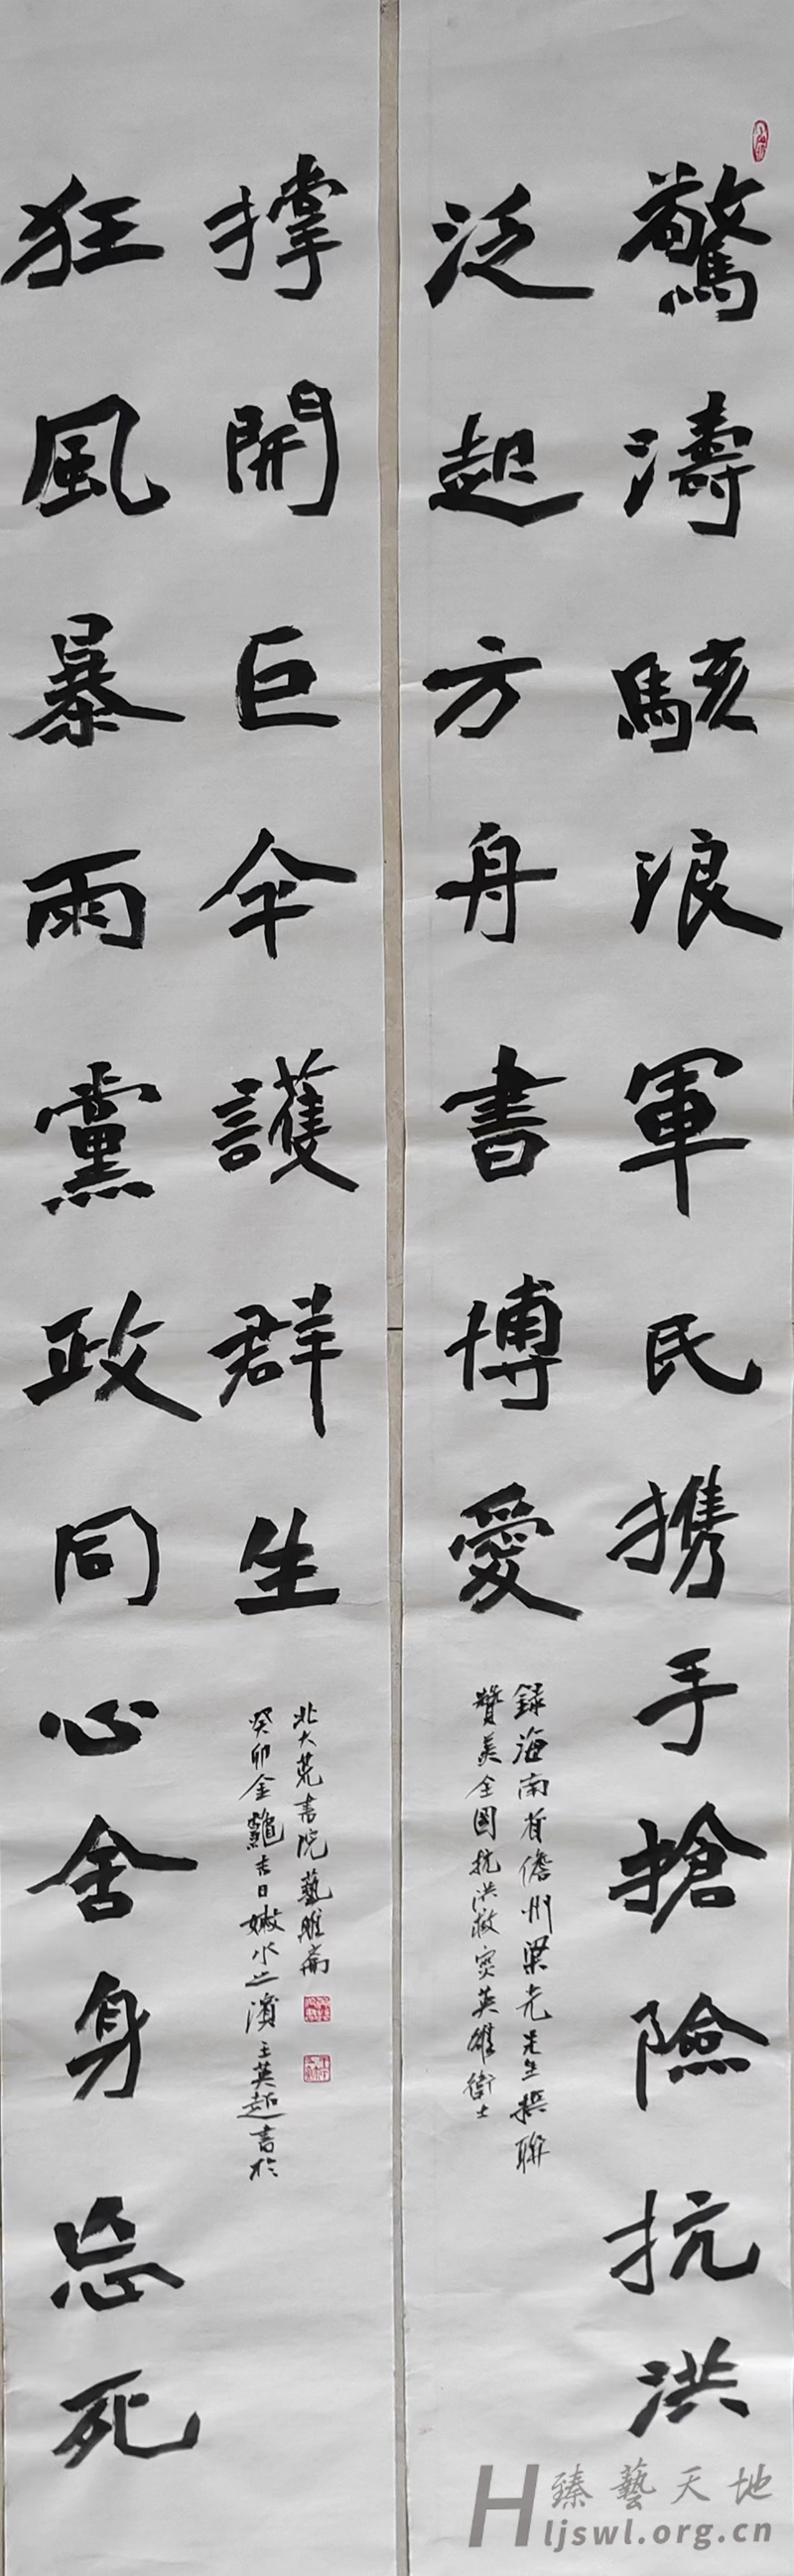 驚濤駭浪軍民携手搶險抗洪
泛起方舟書博愛
録海南省儋州梁光先生撰聯
贊美全國抗洪救災英雄衛士
狂風暴雨黨政同心舍身忘死
撑開巨伞護群生
癸卯金龝吉日嫩水之濱王英書於
北大荒書院藝齋
臻藝天地
Hljswl.org.cn